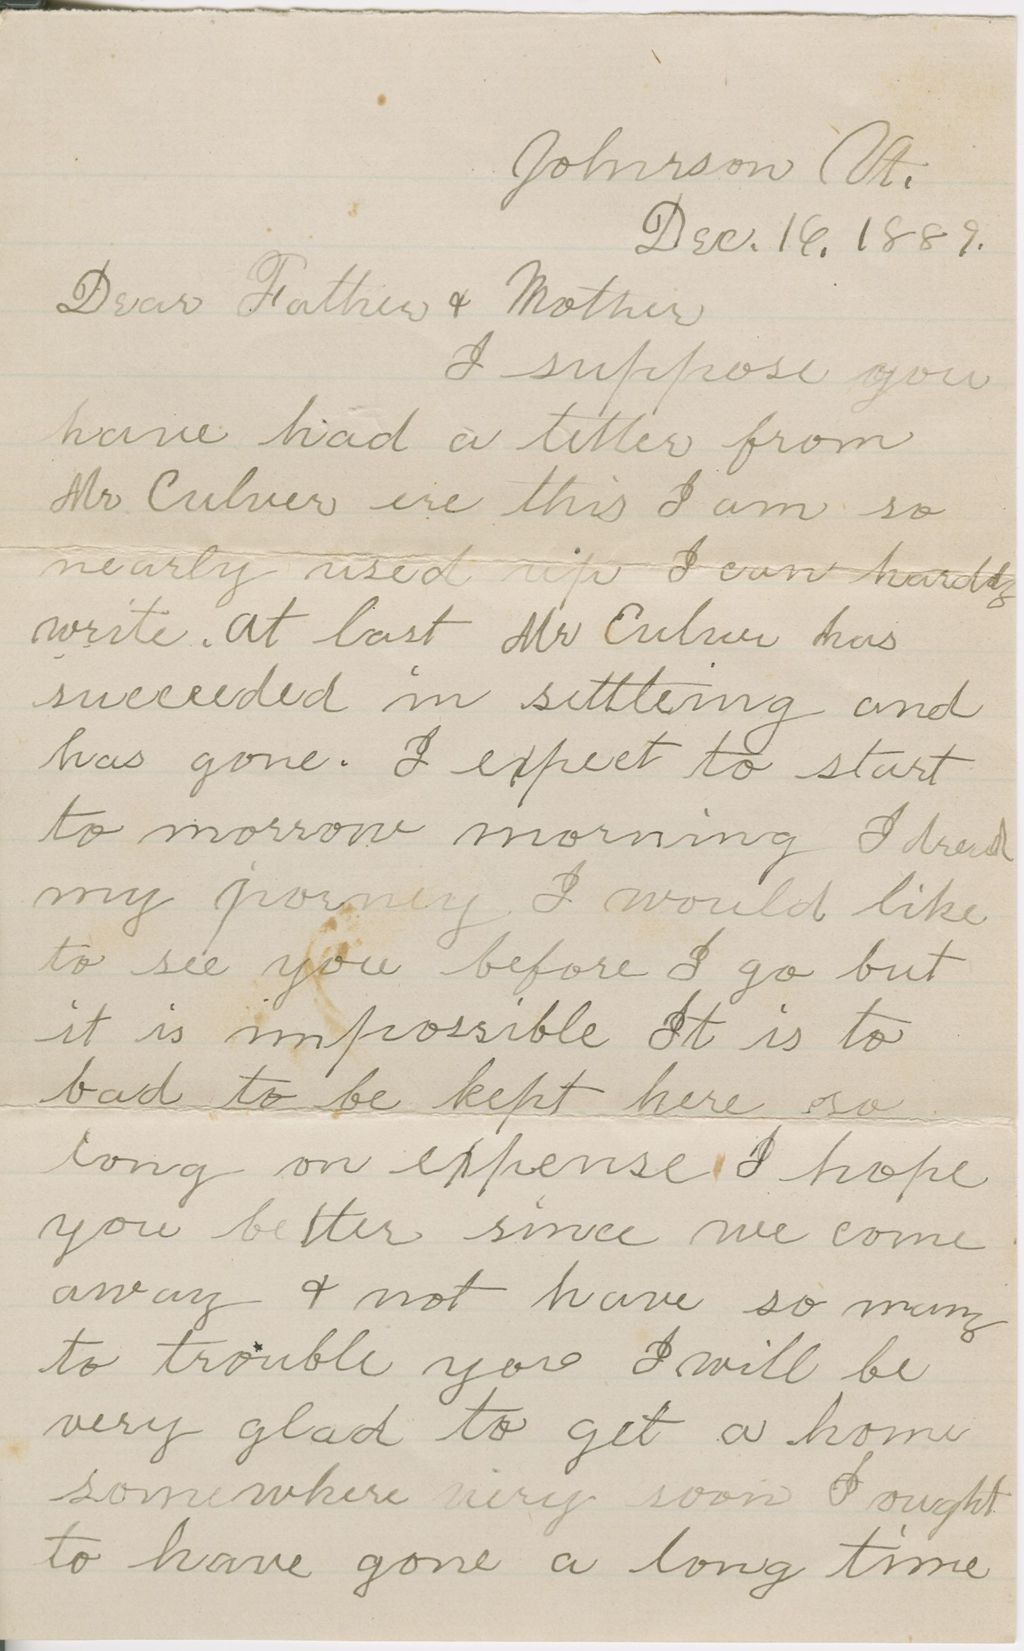 Johnson Vt.
Dec. 16. 1889.
Dear Father & Mother
I suppose you
have had a letter from
Mr Culver ere this I am so
nearly used up I can hardly
write. At last Mr Culver has
succeeded in settleing and
has gone. I expect to start
to morrow morning I dread
my jorney I would like
to see you before I go but
it is impossible It is to
bad to be kept here so
long on expense I hope
you better since we come
away & not have so many
to trouble you I will be
very glad to get a home
somewhere very soon I ought
to have gone a long time